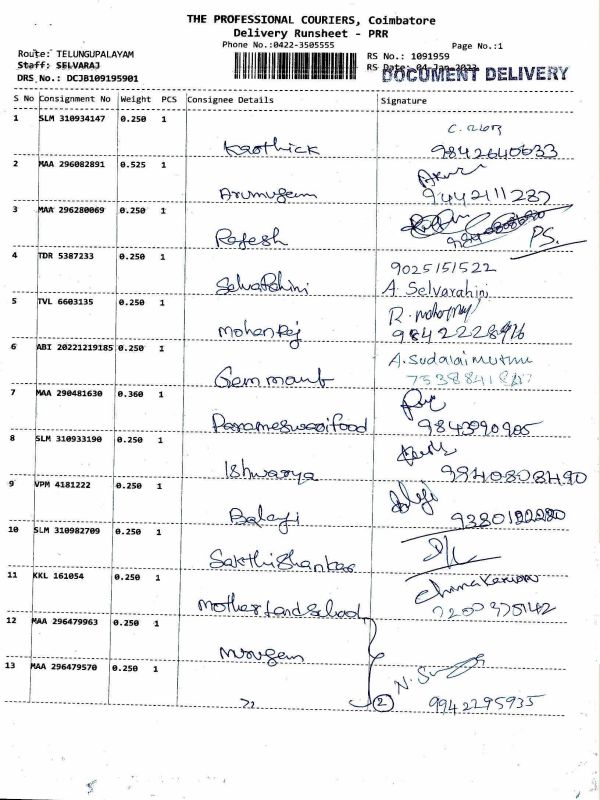 THE PROFESSIONAL COURIERS, Coimbatore
Delivery Runsheet - PRR
Phone No.:0422-3505555 Page No.:1
Route: TELUNGUPALAYAM RS No.: 1091959
Staff: SELVARAJ RS Date: 04-Jan-2023
DOCUMENT DELIVERY
DRS No.: DCJB109195901
S No Consignment No Weight PCS Consignee Details Signature
1 SLM 310934147 0.250 1
Karthick 9842640633
2 MAA 296082891 0.525 1
Arumugam 9442111287
3 MAA 296280069 0.250 1
Rajesh P.S.
4 TDR 5387233 0.250 1 9025151522
Selvarahini A. Selvarahini
5 TVL 6603135 0.250 1
Mohanraj
6 ABI 20221219185 0.250 1 A. Sudalai muthu
7 MAA 290481630 0.360 1
Parameswari food 9843990905
8 SLM 310933190 0.250 1
Ishwarya 9940808490
9 VPM 4181222 0.250 1
Balaji
10 SLM 310982709 0.250 1
Sakthi Shankar
11 KKL 161054 0.250 1
Mother Land School
12 MAA 296479963 0.250 1
Murugan
13 MAA 296479570 0.250 1
2 9942295935